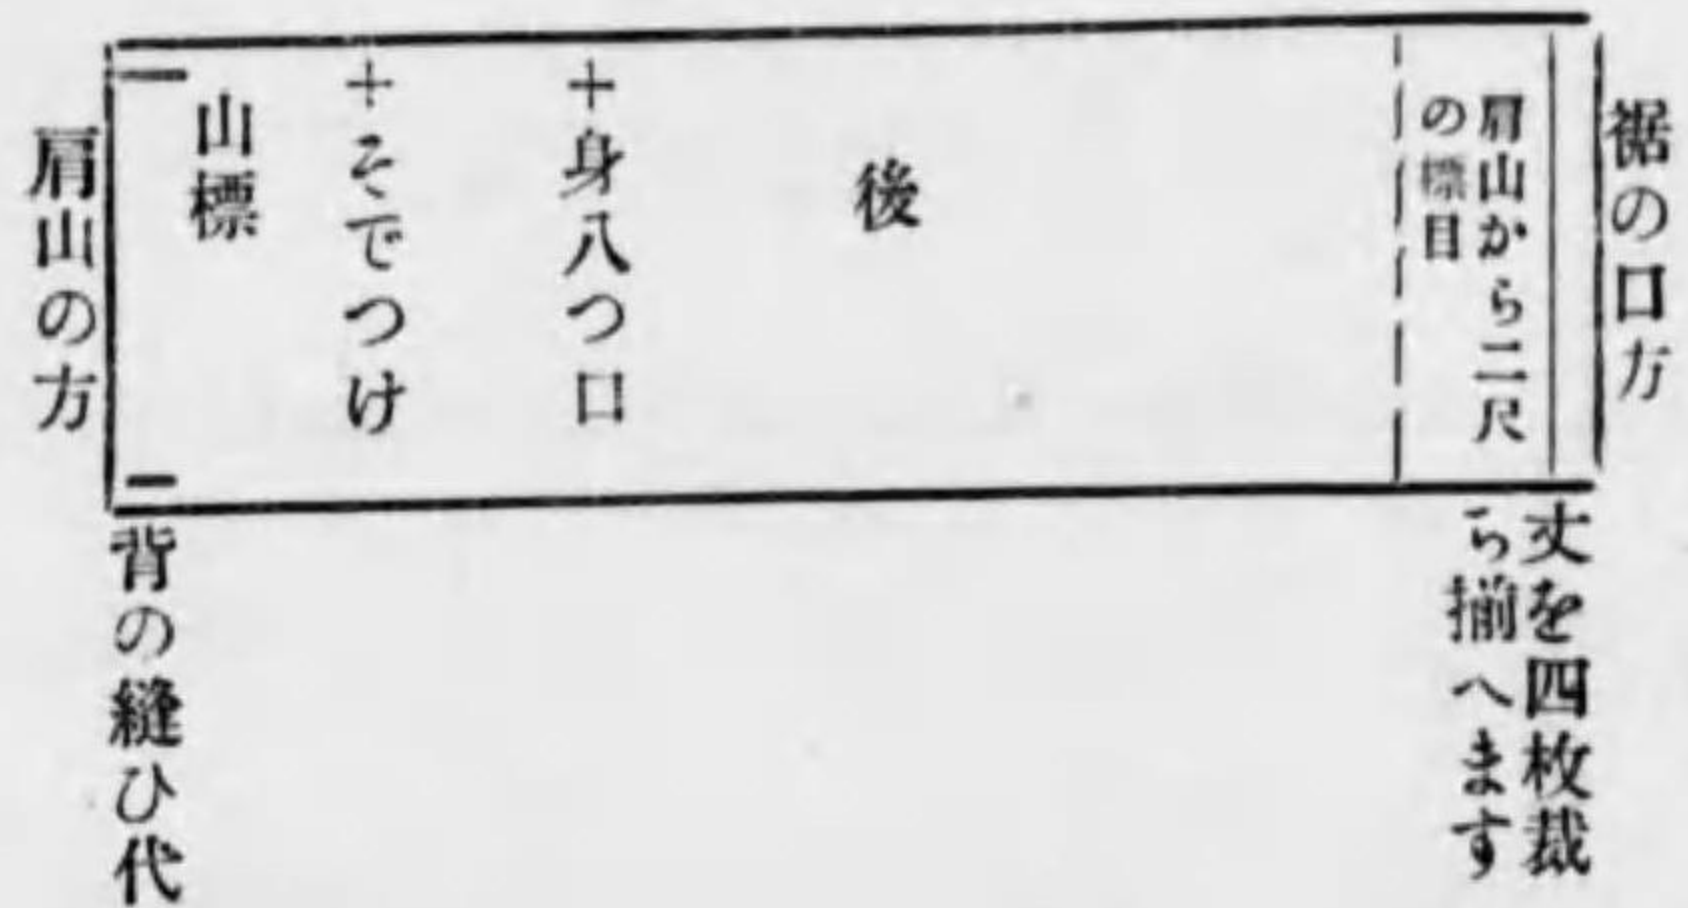 裾の口方
肩山から二尺
の標目
後
身八つ口
そでつけ
山標
肩山の方
丈を四枚裁
ち揃へます
背の縫ひ代